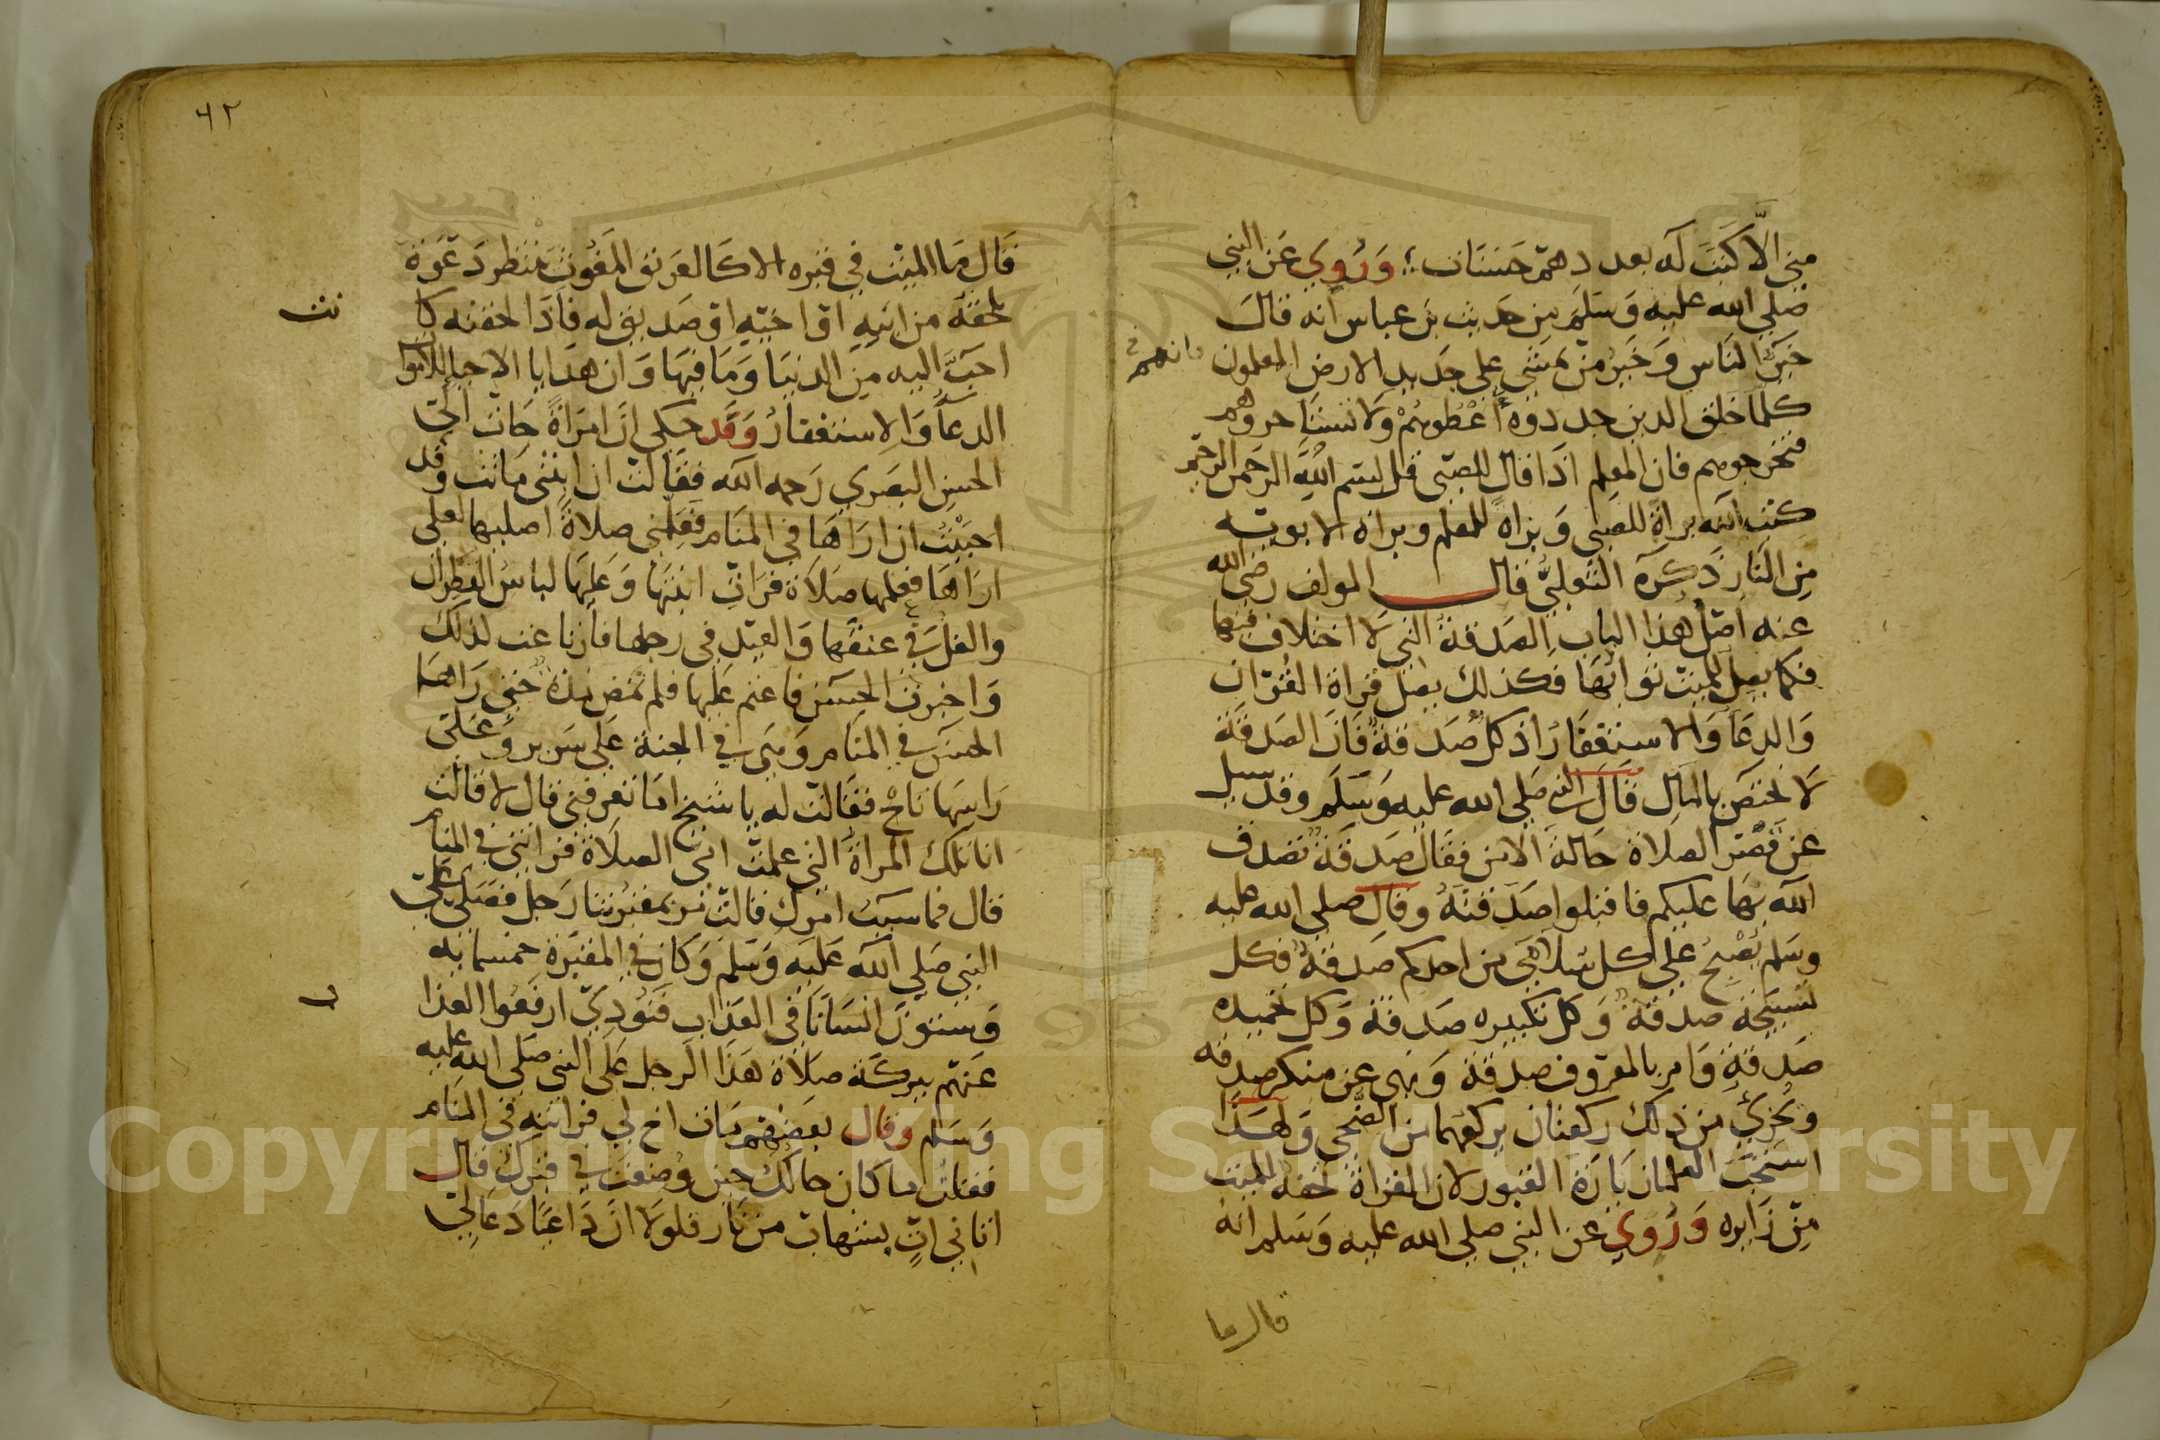 مني الا كتب له بعددهم حسنات وروي عن النبي
صلى الله عليه وسلم من حديث بن عباس انه قال
خير الناس وخير من يمشي على جديد الارض المعلمون
فانهم
كلما خلق الدين جددوه اعطوهم ولا تستاجروهم
فتحرجوهم فان المعلم اذا قال للصبي قل بسم الله الرحمن الرحيم
كتب الله براة للصبي وبراة للمعلم وبراة لابويه
من النار ذكره الثعلبي قال المولف رضي الله
عنه اصل هذا الباب الصدقة التي لا اختلاف فيها
فكما يصل للميت ثوابها فكذلك يصل قراة القران
والدعا والاستغفار اذ كل صدقة فان الصدقة
لا تختص بالمال قال النبي صلى الله عليه وسلم وقد سيل
عن قصر الصلاة حالة الامن فقال صدقة تصدق
الله بها عليكم فاقبلوا صدقته وقال صلى الله عليه
وسلم يصبح على كل سلامى من احدكم صدقة فكل
تسبيحة صدقة وكل تكبيره صدقة وكل تحميده
صدقة وامر بالمعروف صدقة ونهي عن منكر صدقه
ويجزي من ذلك ركعتان يركعهما من الضحى ولهذا
استحب العلما زيارة القبور لان القراة تحفة الميت
من زايره وروي عن النبي صلى الله عليه وسلم انه
قال ما
٦٢
قال ما الميت في قبره الا كالغريق المغوث ينتظر دعوة
تلحقه من ابيه او اخيه او صديق له فاذا لحقته كا
نت
احب اليه من الدنيا وما فيها وان هدايا الاحيا للاموا
الدعا والاستغفار وقد حكي ان امراة جات الى
الحسن البصري رحمه الله فقالت ان ابنتي ماتت وقد
احببت ان اراها في المنام فعلمني صلاة اصليها لعلي
اراها فعلمها صلاة فرات ابنتها وعليها لباس القطران
والغل في عنقها والقيد في رجلها فارتاعت لذلك
واخبرت الحسن فاغتم عليها فلم تمض مدة حتى راها
الحسن في المنام وهي في الجنة على سرير وعلى
راسها تاج فقالت له يا شيخ اما تعرفني قال لا قالت
انا تلك المراة التي علمت امي الصلاة فراتني في المنام
قال فما سبب امرك قالت مر بمقبرتنا رجل فصلى على
النبي صلى الله عليه وسلم وكان في المقبرة خمسمايه
وستون انسانا في العذاب فنودي ارفعوا العذا
ب
عنهم ببركة صلاة هذا الرجل على النبي صلى الله عليه
وسلم وقال بعضهم مات اخ لي فرايته في المنام
فقلت ما كان حالك حين وضعت في قبرك قال
اتاني ات بشهاب من نار فلولا ان داعيا دعا لي
Copyright © King Saud University